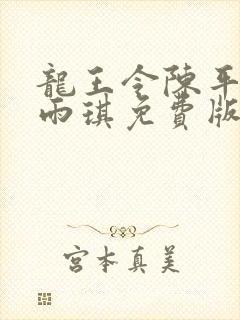 龍王令陳平
雨琪免費版
宮本真美